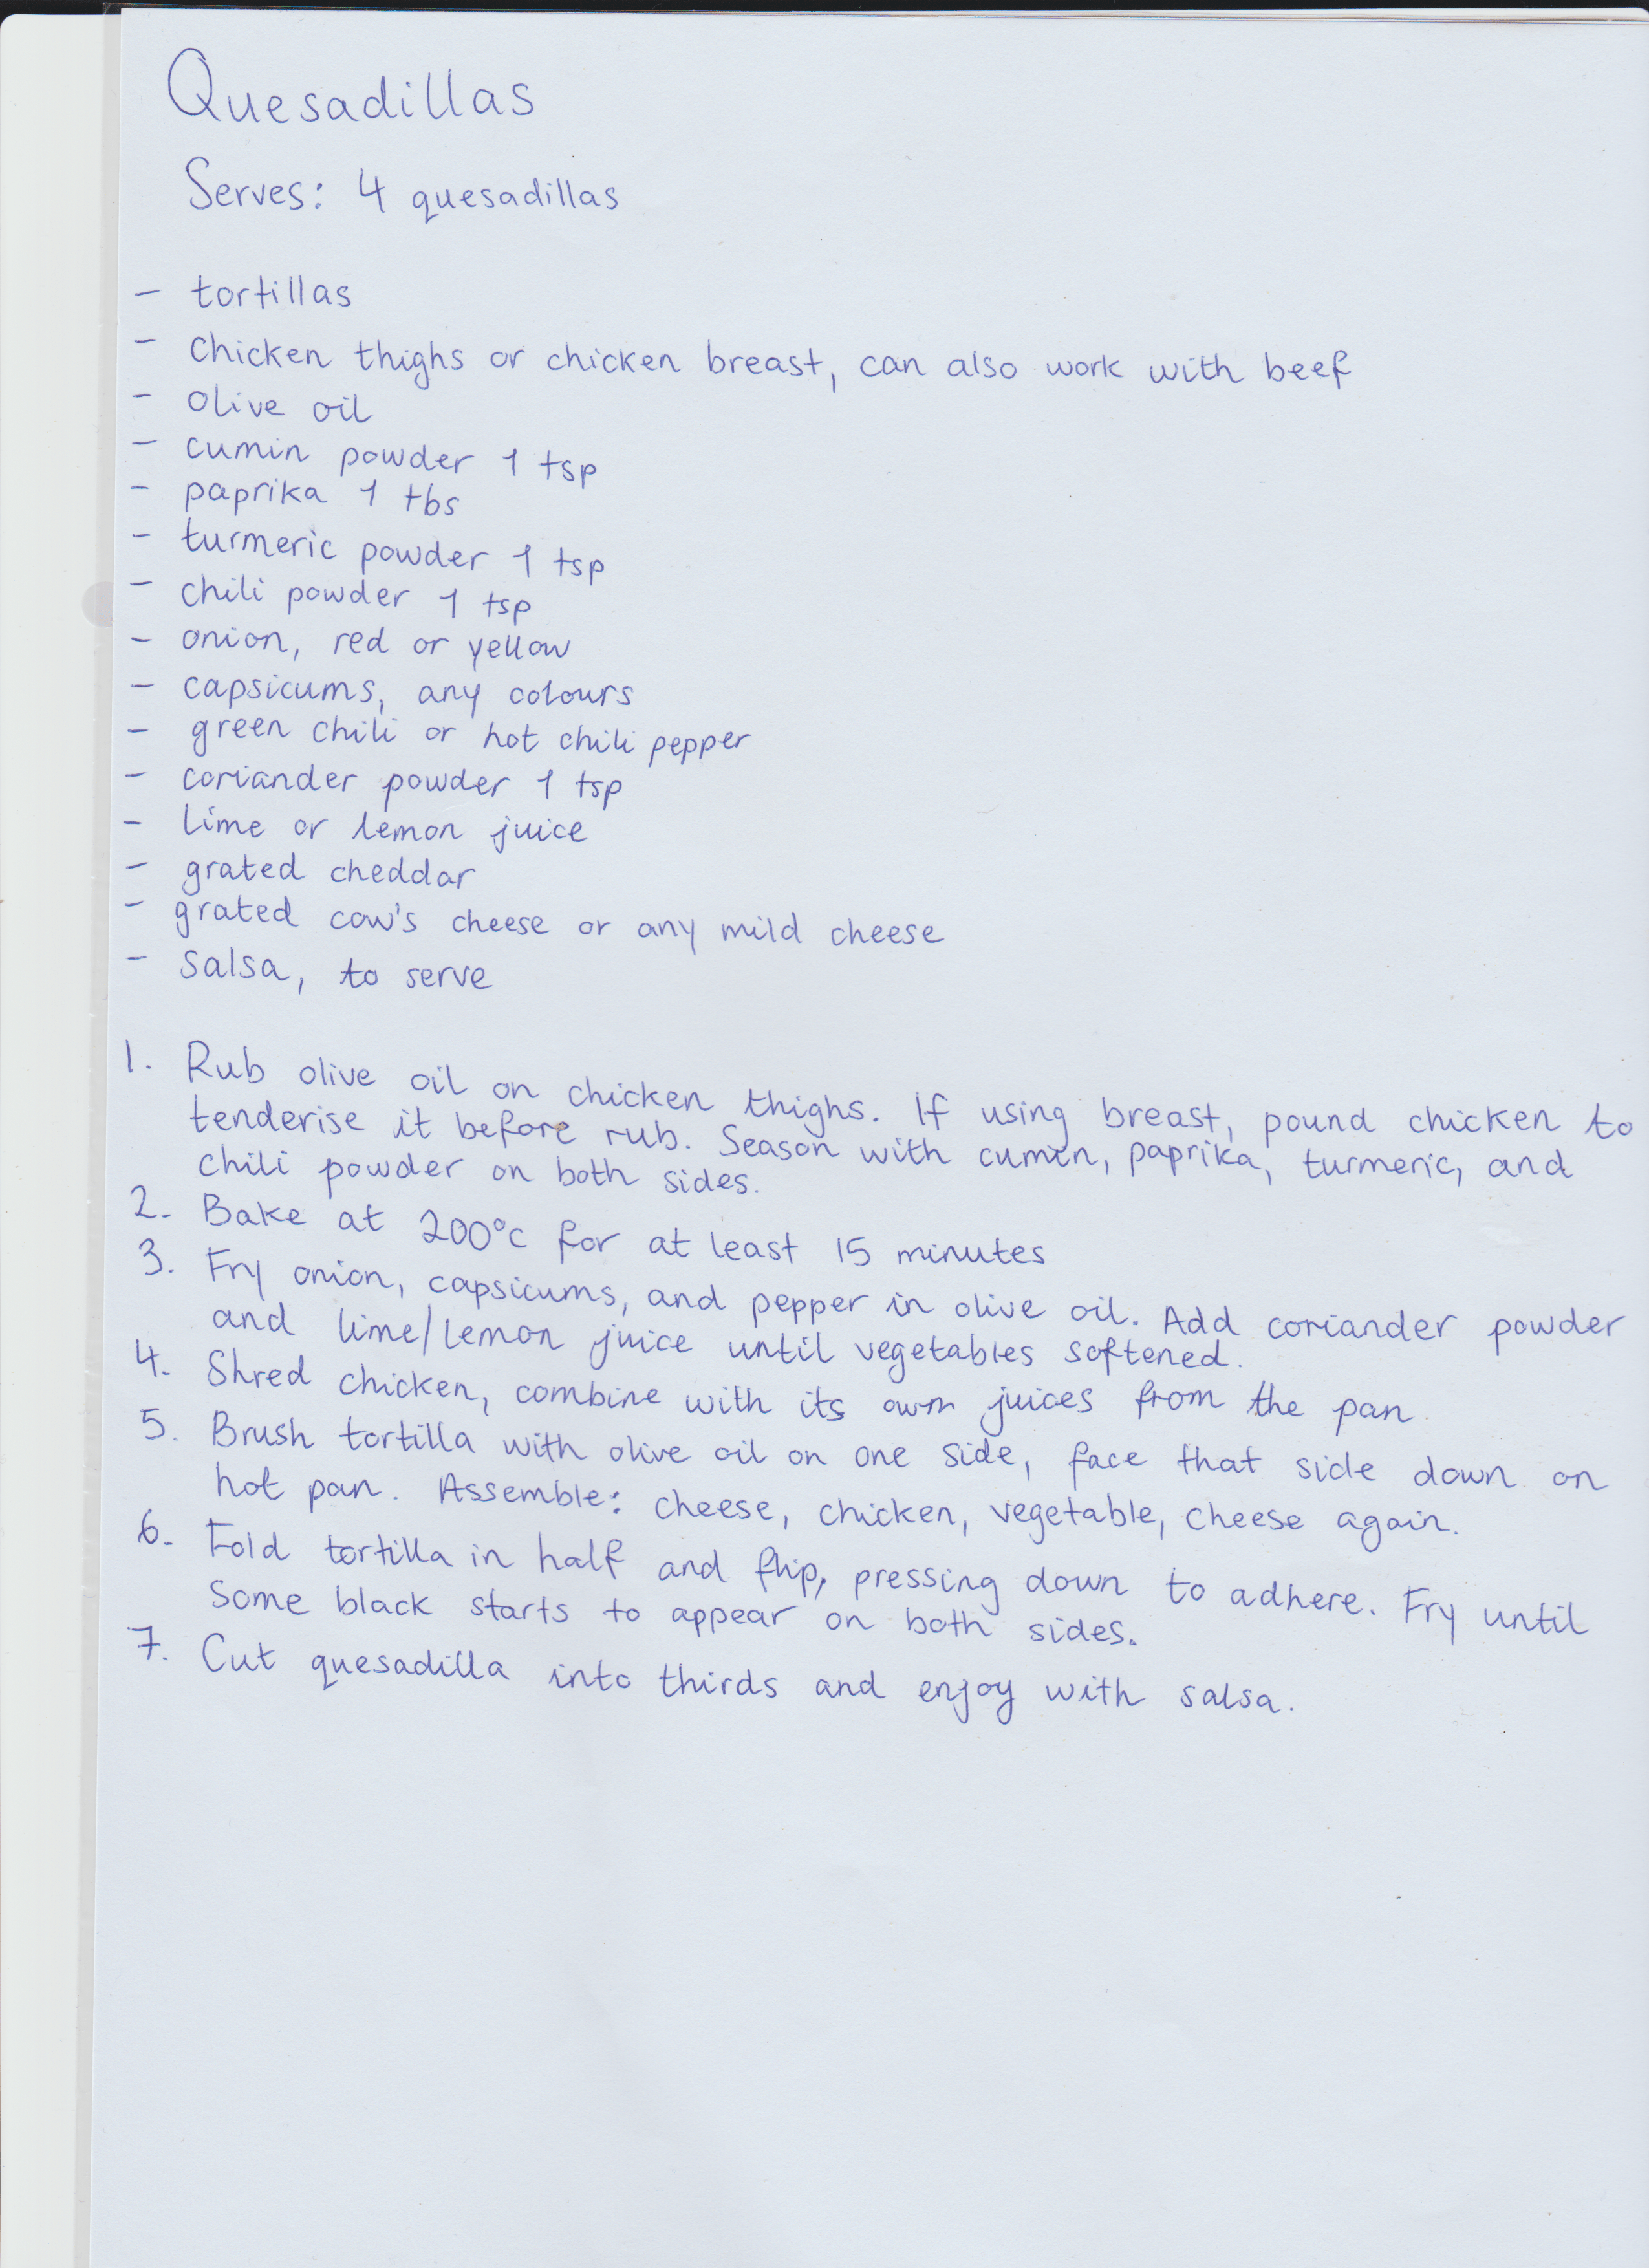 Quesadillas
Serves: 4 quesadillas
- tortillas
- chicken thighs or chicken breast, can also work with beef
- olive oil
- cumin powder 1 tsp
- paprika 1 tbs
- turmeric powder 1 tsp
- chili powder 1 tsp
- onion, red or yellow
- capsicums, any colours
- green chili or hot chili pepper
- coriander powder 1 tsp
- lime or lemon juice
- grated cheddar
- grated cow's cheese or any mild cheese
- salsa, to serve
1. Rub olive oil on chicken thighs. If using breast, pound chicken to
tenderise it before rub. Season with cumin, paprika, turmeric, and
chili powder on both sides.
2. Bake at 200°c for at least 15 minutes
3. Fry onion, capsicums, and pepper in olive oil. Add coriander powder
and lime/lemon juice until vegetables softened.
4. Shred chicken, combine with its own juices from the pan.
5. Brush tortilla with olive oil on one side, face that side down on
hot pan. Assemble: cheese, chicken, vegetable, cheese again.
6. Fold tortilla in half and flip, pressing down to adhere. Fry until
some black starts to appear on both sides.
7. Cut quesadilla into thirds and enjoy with salsa.